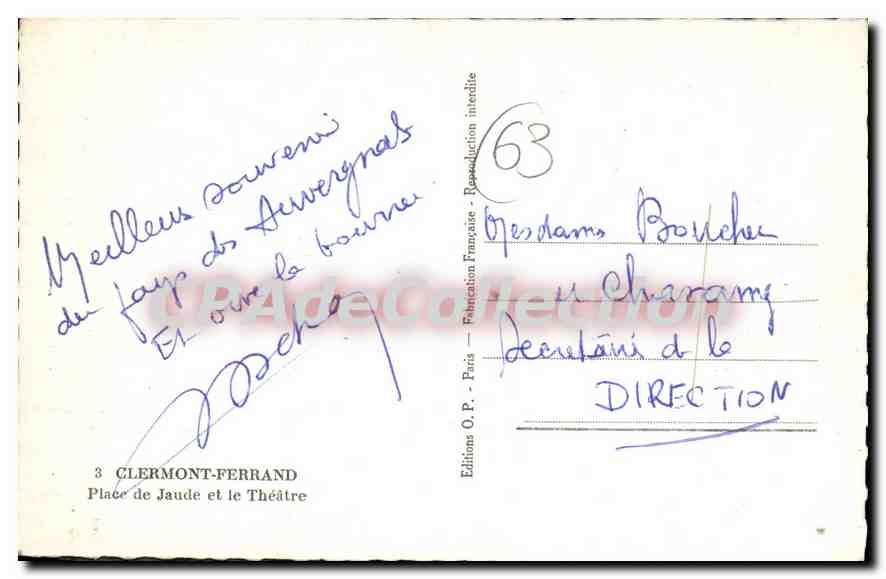 Meilleurs souvenir
du pays des Auvergnats
Et vive la bourrée
3 CLERMONT-FERRAND
Place de Jaude et le Théâtre
Editions O. P. - Paris — Fabrication Française - Reproduction interdite
63
Mesdams Boucher
et Charamy
Secretairi d la
DIRECTION
CPAdeCollection